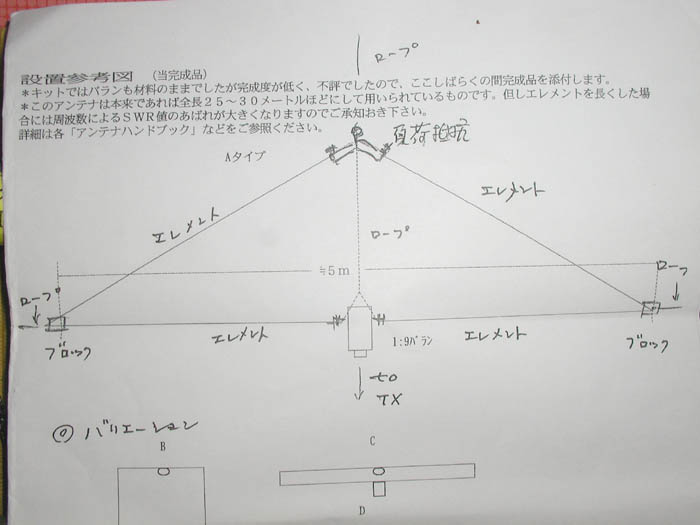 ロープ
設置参考図 (当完成品)
*キットではバランも材料のままでしたが完成度が低く、不評でしたので、ここしばらくの間完成品を添付します。
*このアンテナは本来であれば全長25~30メートルほどにして用いられているものです。但しエレメントを長くした場
合には周波数によるSWR値のあばれが大きくなりますのでご承知おき下さい。
詳細は各「アンテナハンドブック」などをご参照ください。
負荷抵抗
Aタイプ
エレメント
エレメント
ロープ
≒5m
ロープ
ロープ
エレメント
エレメント
ブロック
1:9バラン
ブロック
to
TX
◎ バリエーション
B
C
D